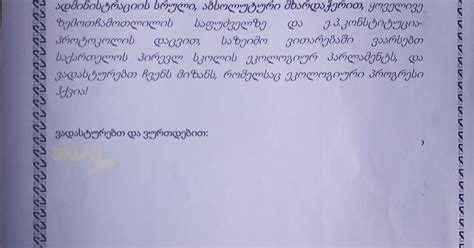 ადმინისტრაციის სრული, აბსოლუტური მხარდაჭერით, ყოველივე
ზემოთჩამოთლილის საფუძველზე და ე.პ.კონსტიტუცია-
პროტოკოლის დაცვით, საზეიმო ვითარებაში ვაარსებთ
საქართველოს პირველ სკოლის ეკოლოგიურ პარლამენტს, და
ვადასტურებთ ჩვენს მიზანს, რომელსაც ეკოლოგიური პროგრესი
ჰქვია!
ვადასტურებთ და ვურთდებით: